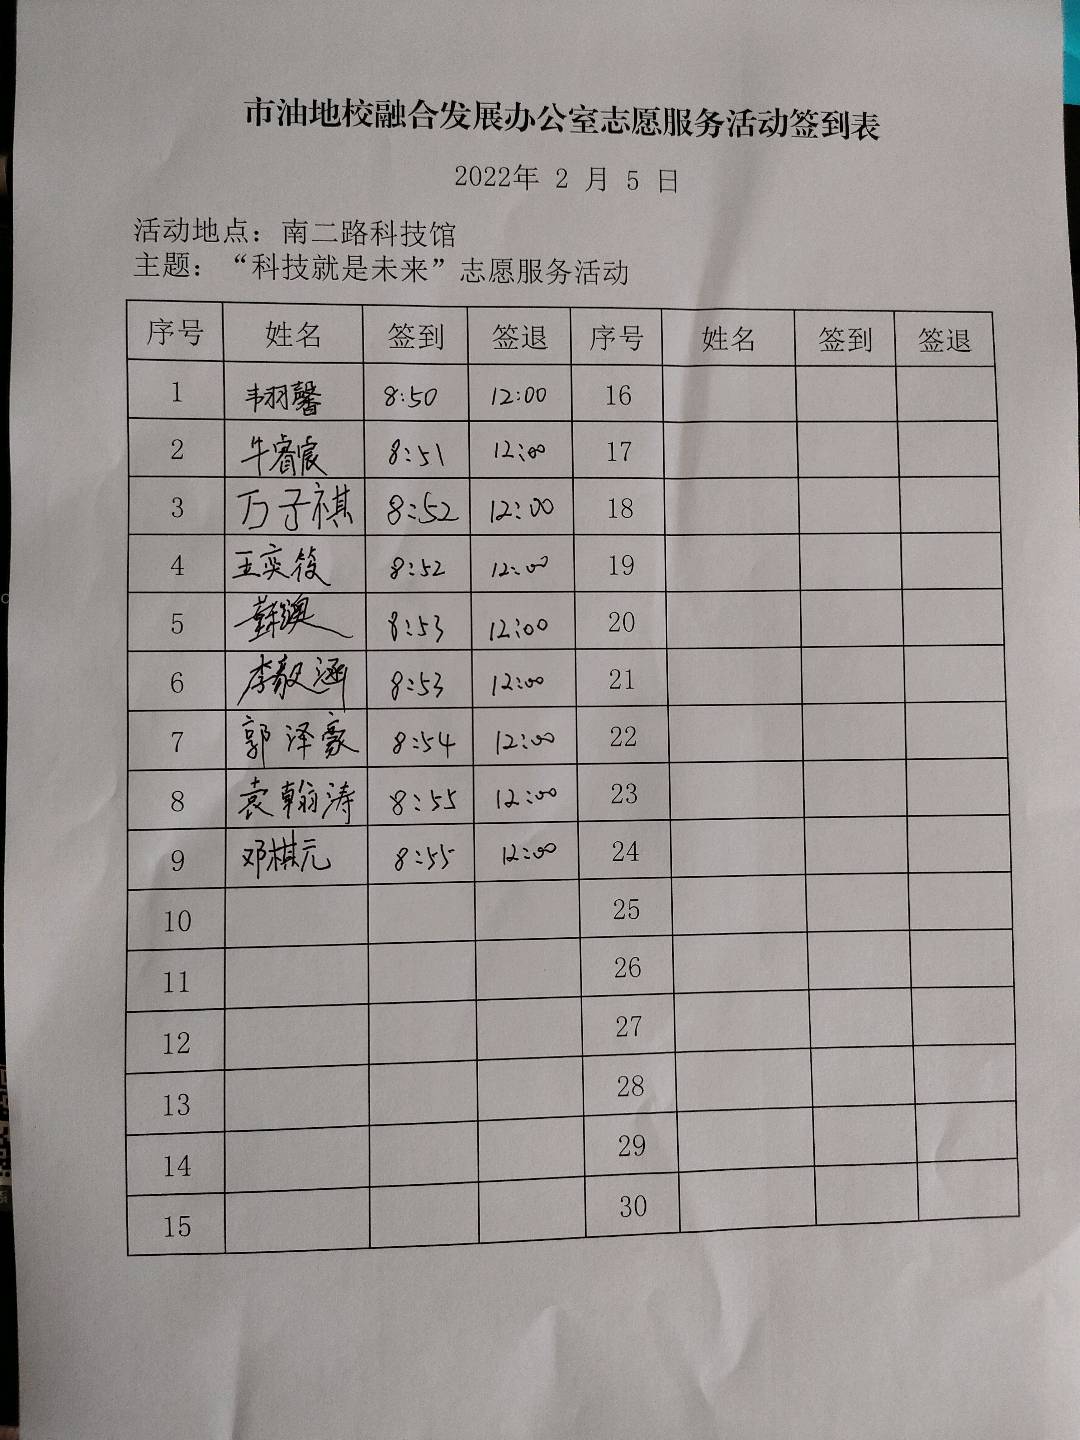 市油地校融合发展办公室志愿服务活动签到表
2022年 2 月 5 日
活动地点：南二路科技馆
主题：“科技就是未来”志愿服务活动
序号 姓名 签到 签退 序号 姓名 签到 签退
1 韦羽馨 8:50 12:00 16
2 牛睿宸 8:51 12:00 17
3 万子祺 8:52 12:00 18
4 王奕筱 8:52 12:00 19
5 8:53 12:00 20
6 李毅涵 8:53 12:00 21
7 郭泽豪 8:54 12:00 22
8 袁翰涛 8:55 12:00 23
9 邓棋元 8:55 12:00 24
10 25
11 26
12 27
13 28
14 29
15 30